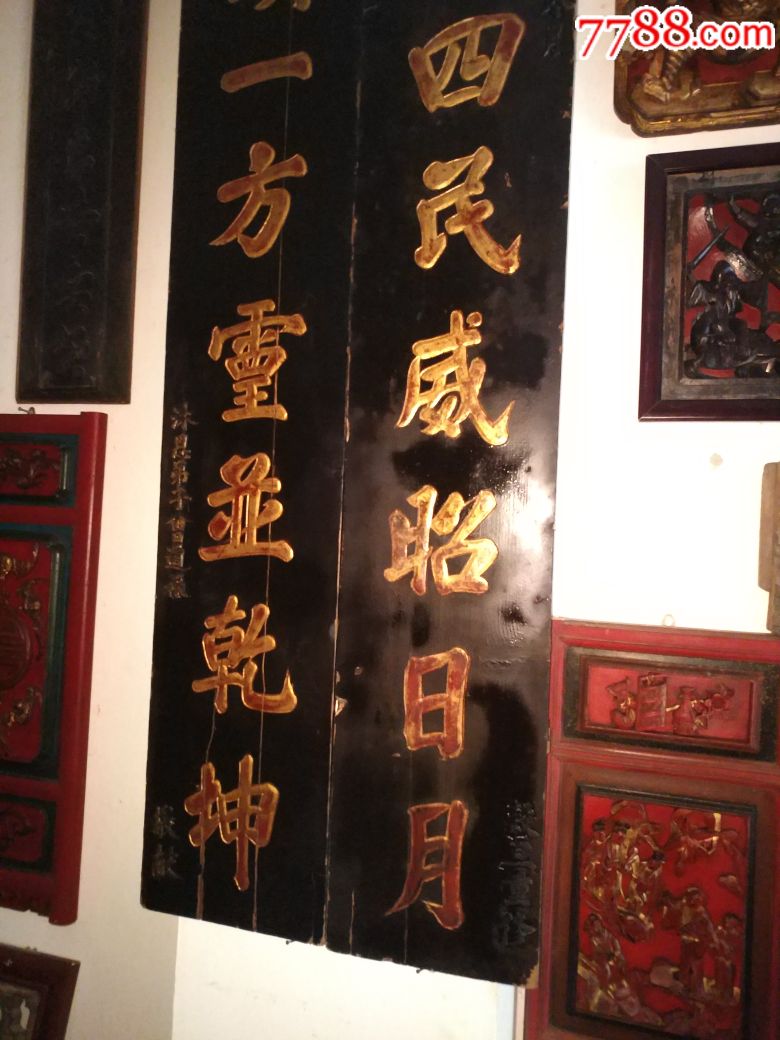 7788.com
四民威昭日月
一方靈並乾坤
沐恩弟子
敬獻